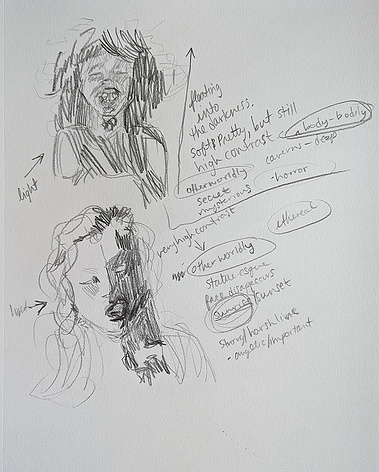 floating
into
the darkness.
soft & pretty, but still
high contrast
body-bodily
caverns - deep
otherworldly
secret
- horror
mysterious
light
very high contrast
ethereal
otherworldly
statue-esque
face disappears
sunrise/sunset
light
strong/harsh line
- angelic/important